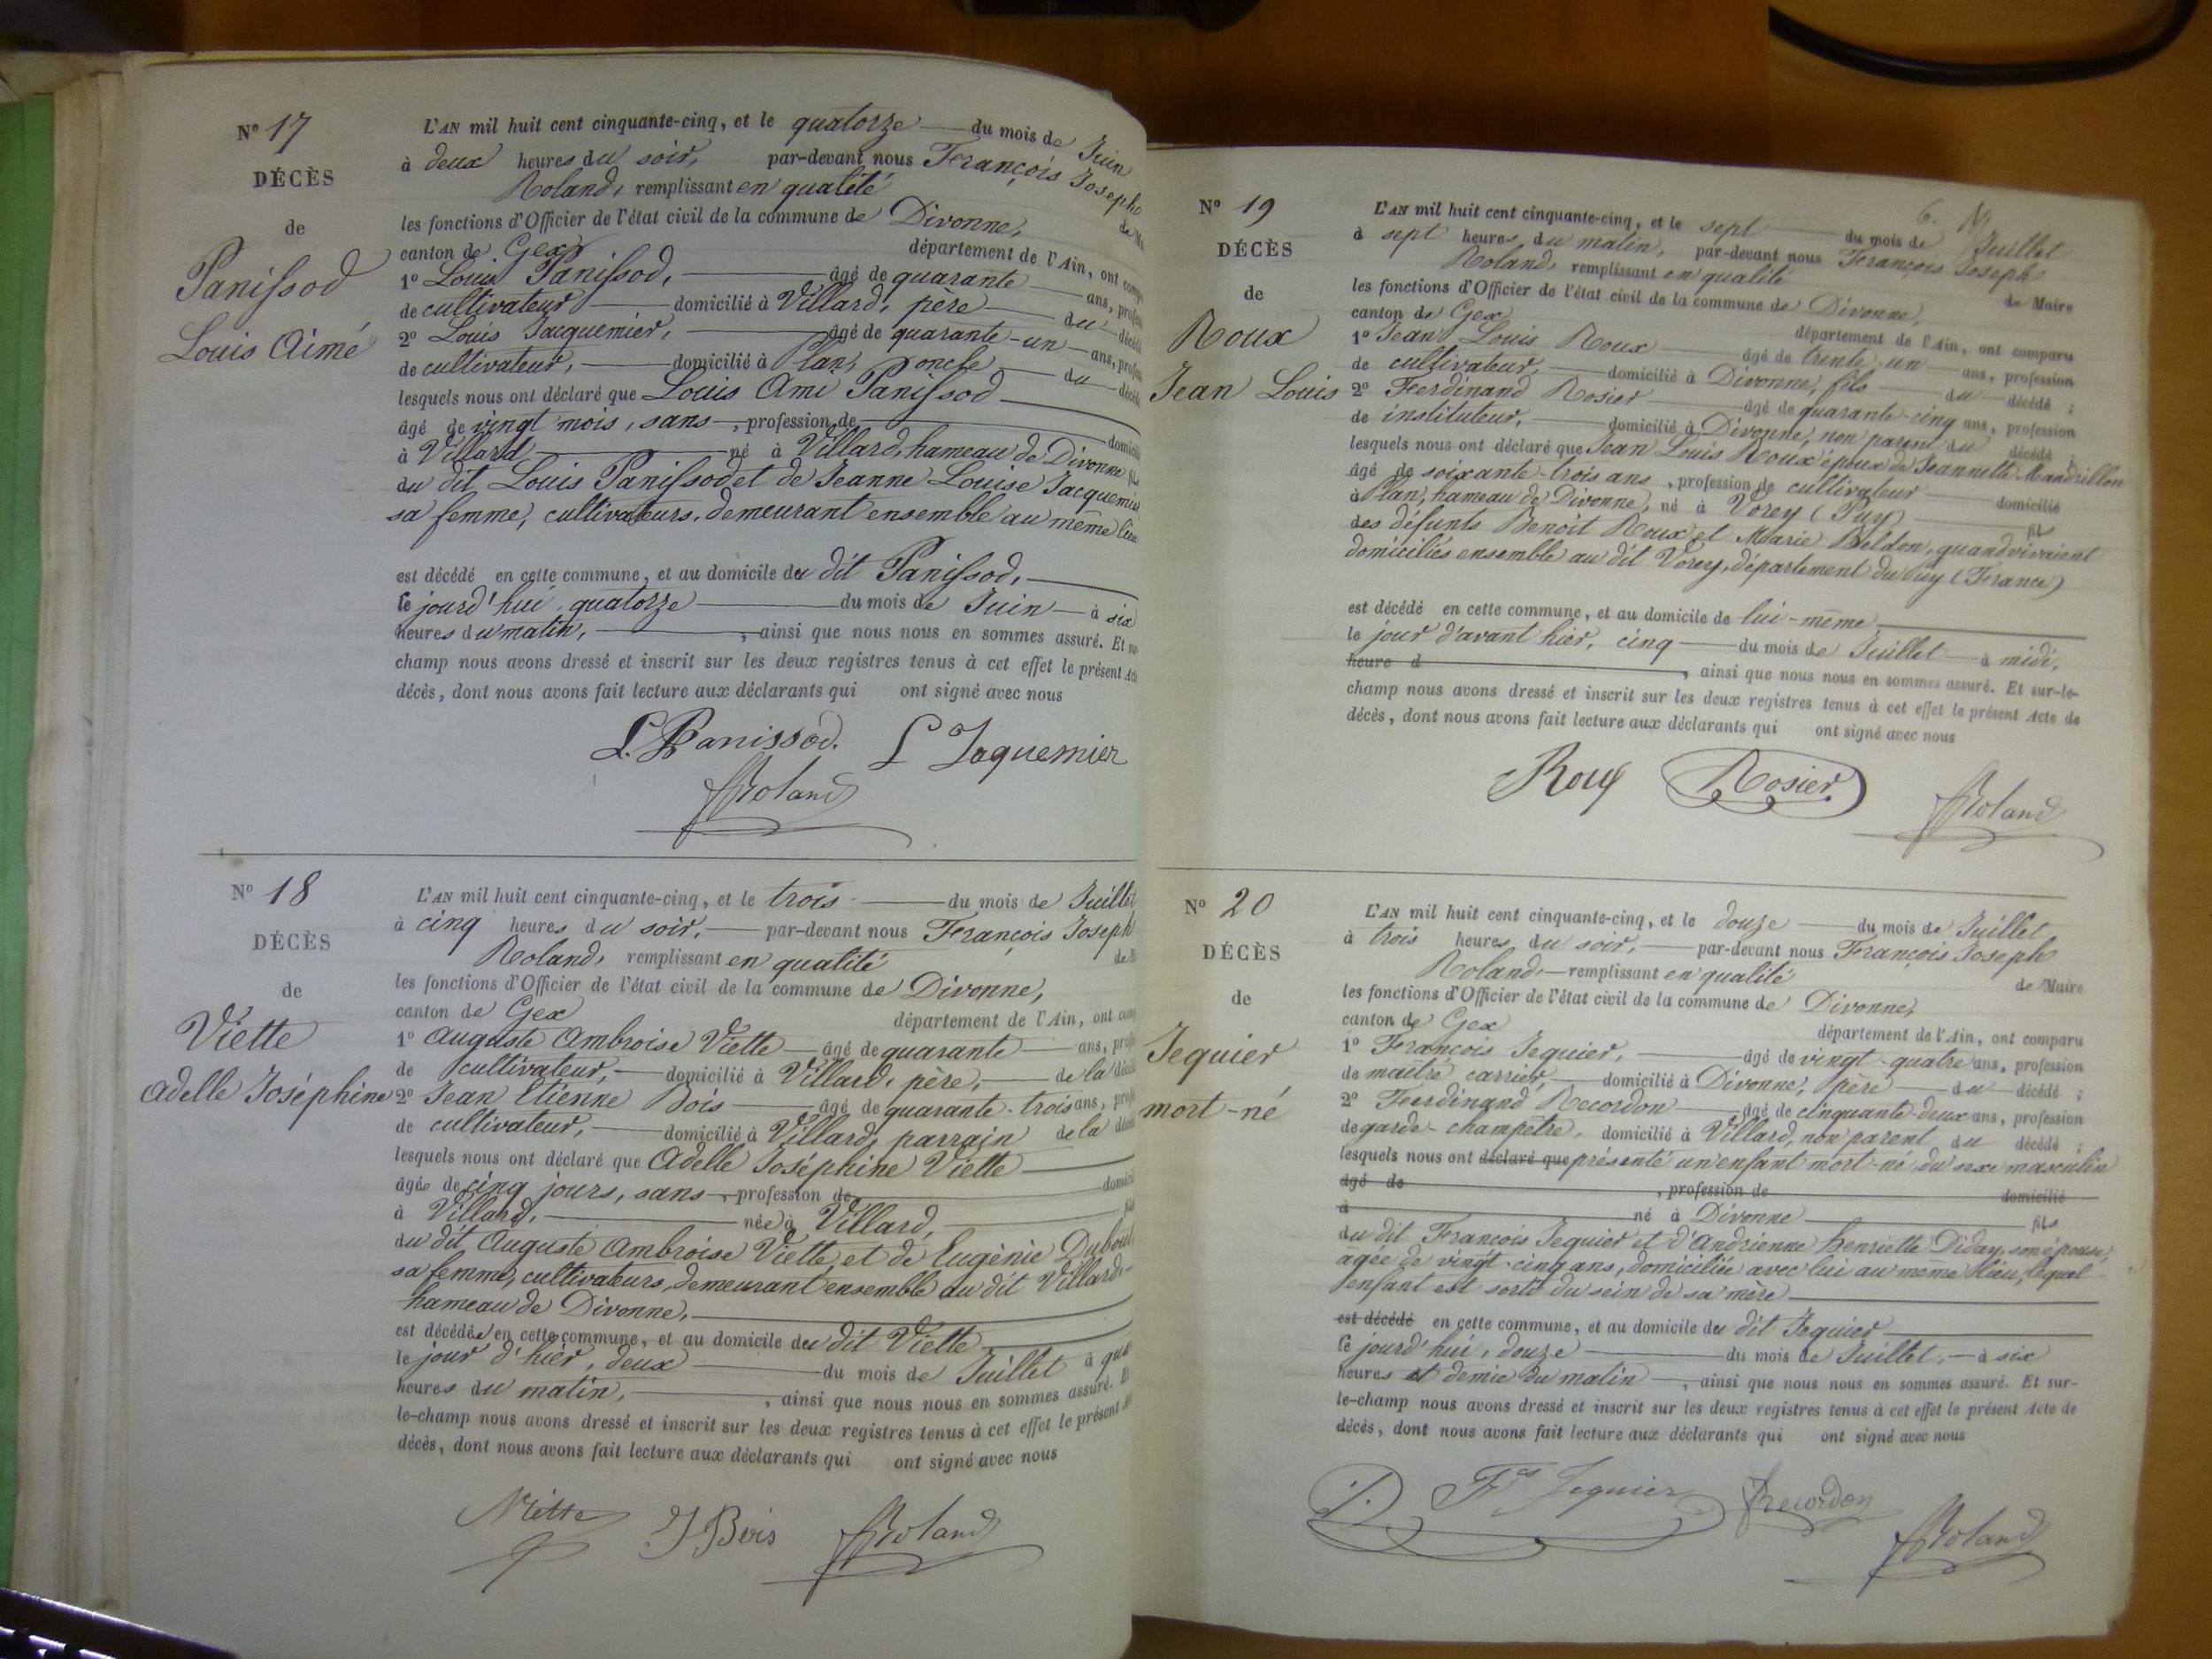 N° 17
DÉCÈS
de
Panissod
Louis Aimé
L'AN mil huit cent cinquante-cinq, et le quatorze du mois de Juin
à deux heures du soir, par-devant nous François Joseph
Roland, remplissant en qualité de
les fonctions d'Officier de l'état civil de la commune de Divonne,
canton de Gex département de l'Ain, ont
1° Louis Panissod, âgé de quarante ans,
de cultivateur domicilié à Villard, père du
2° Louis Jacquemier, âgé de quarante-un ans,
de cultivateur, domicilié à Plan, oncle du
lesquels nous ont déclaré que Louis Ami Panissod
âgé de vingt mois, sans, profession de
à Villard né à Villard, hameau de Divonne
du dit Louis Panissod et de Jeanne Louise Jacquemier
sa femme, cultivateurs, demeurant ensemble au même lieu
est décédé en cette commune, et au domicile du dit Panissod,
le jourd'hui, quatorze du mois de Juin à six
heures du matin, , ainsi que nous nous en sommes assuré. Et
champ nous avons dressé et inscrit sur les deux registres tenus à cet effet le présent
décès, dont nous avons fait lecture aux déclarants qui ont signé avec nous
L. Panissod. L Jaquemier
Roland
N° 18
DÉCÈS
de
Viette
Adelle Joséphine
L'AN mil huit cent cinquante-cinq, et le trois du mois de Juillet
à cinq heures du soir, par-devant nous François Joseph
Roland, remplissant en qualité de
les fonctions d'Officier de l'état civil de la commune de Divonne,
canton de Gex département de l'Ain, ont
1° Auguste Ambroise Viette âgé de quarante ans,
de cultivateur, domicilié à Villard, père, de la
2° Jean Etienne Bois âgé de quarante-trois ans,
de cultivateur, domicilié à Villard, parrain de la
lesquels nous ont déclaré que Adelle Joséphine Viette
âgée de cinq jours, sans, profession de
à Villard, née à Villard,
du dit Auguste Ambroise Viette et de Eugènie
sa femme, cultivateurs, demeurant ensemble au dit Villard,
hameau de Divonne,
est décédée en cette commune, et au domicile du dit Viette
le jour d'hier, deux du mois de Juillet à
heures du matin, , ainsi que nous nous en sommes assuré.
le-champ nous avons dressé et inscrit sur les deux registres tenus à cet effet le présent
décès, dont nous avons fait lecture aux déclarants qui ont signé avec nous
Viette J Bois Roland
6.
N° 19
DÉCÈS
de
Roux
Jean Louis
L'AN mil huit cent cinquante-cinq, et le sept du mois de Juillet
à sept heures du matin, par-devant nous François Joseph
Roland, remplissant en qualité de Maire
les fonctions d'Officier de l'état civil de la commune de Divonne,
canton de Gex département de l'Ain, ont comparu
1° Jean Louis Roux âgé de trente-un ans, profession
de cultivateur, domicilié à Divonne, fils du décédé ;
2° Ferdinand Rosier âgé de quarante-cinq ans, profession
de instituteur, domicilié à Divonne, non parent du décédé ;
lesquels nous ont déclaré que Jean Louis Roux époux de Jeannette Mandrillon
âgé de soixante-trois ans, profession de cultivateur domicilié
à Plan, hameau de Divonne, né à Vorey (Puy) fils
des défunts Benoit Roux et Marie Beldon, quand vivaient
domiciliés ensemble au dit Vorey, département du Puy (France)
est décédé en cette commune, et au domicile de lui-même
le jour d'avant hier, cinq du mois de Juillet à midi,
heure d , ainsi que nous nous en sommes assuré. Et sur-le-
champ nous avons dressé et inscrit sur les deux registres tenus à cet effet le présent Acte de
décès, dont nous avons fait lecture aux déclarants qui ont signé avec nous
Roux Rosier. Roland
N° 20
DÉCÈS
de
Jequier
mort-né
L'AN mil huit cent cinquante-cinq, et le douze du mois de Juillet
à trois heures du soir, par-devant nous François Joseph
Roland, remplissant en qualité de Maire
les fonctions d'Officier de l'état civil de la commune de Divonne,
canton de Gex département de l'Ain, ont comparu
1° François Jequier, âgé de vingt-quatre ans, profession
de maître carrier, domicilié à Divonne, père du décédé ;
2° Ferdinand Recordon âgé de cinquante-deux ans, profession
de garde-champetre, domicilié à Villard, non parent du décédé ;
lesquels nous ont déclaré que présenté un enfant mort-né, du sexe masculin
âgé de , profession de domicilié
à né à Divonne fils
du dit François Jequier et d'Andrienne Henriette Diday, son épouse,
agée de vingt-cinq ans, domiciliée avec lui au même lieu, lequel
enfant est sorti du sein de sa mère
est décédé en cette commune, et au domicile du dit Jequier
le jourd'hui, douze du mois de Juillet, à six
heures et demie du matin , ainsi que nous nous en sommes assuré. Et sur-
le-champ nous avons dressé et inscrit sur les deux registres tenus à cet effet le présent Acte de
décès, dont nous avons fait lecture aux déclarants qui ont signé avec nous
Fçs Jequier Recordon
Roland